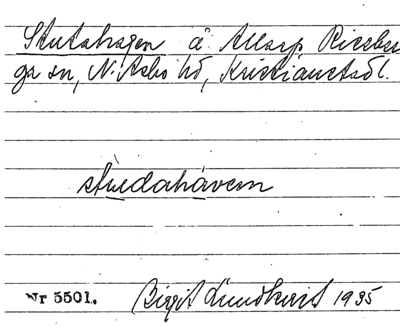 Stutahagen å Allarp Riseber
ga sn, N. Åsbo hd, Kristianstads l.
stu̇dahávern
Nr 5501. Birgit Lundkvist 1935